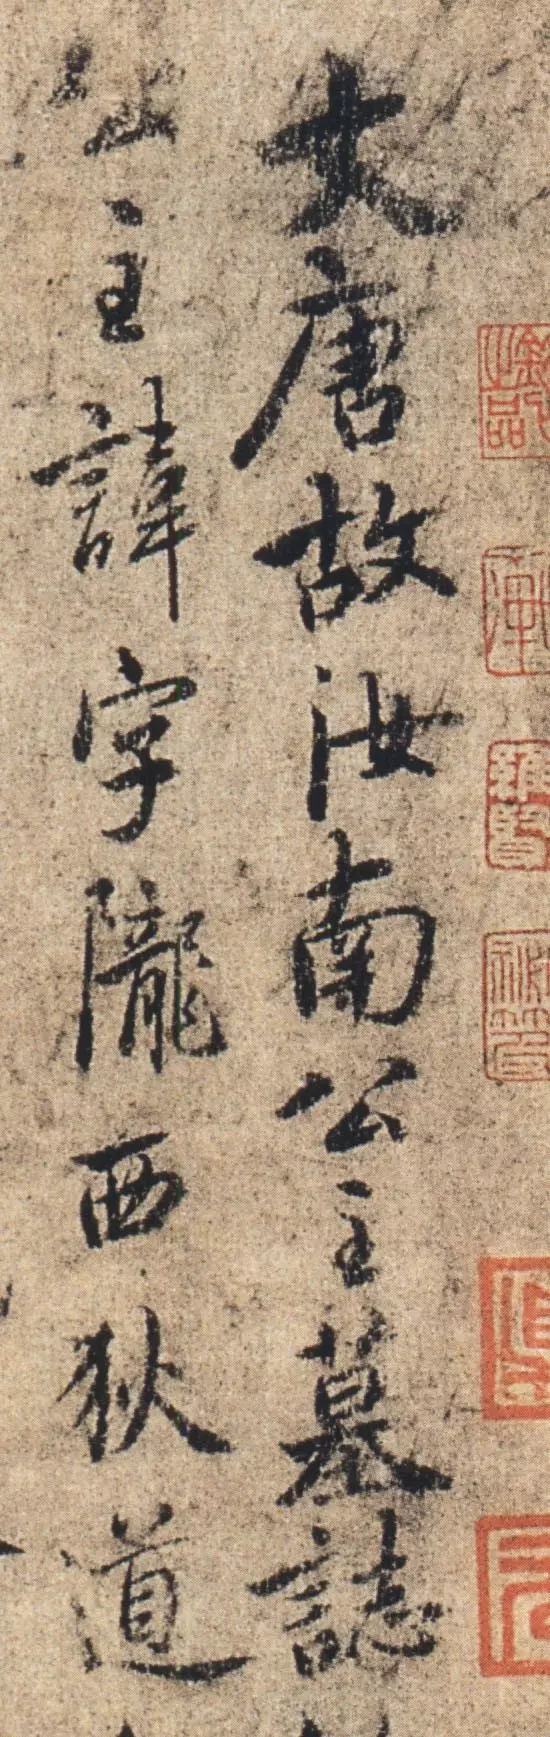 大唐故汝南公主墓誌
公主諱字隴西狄道